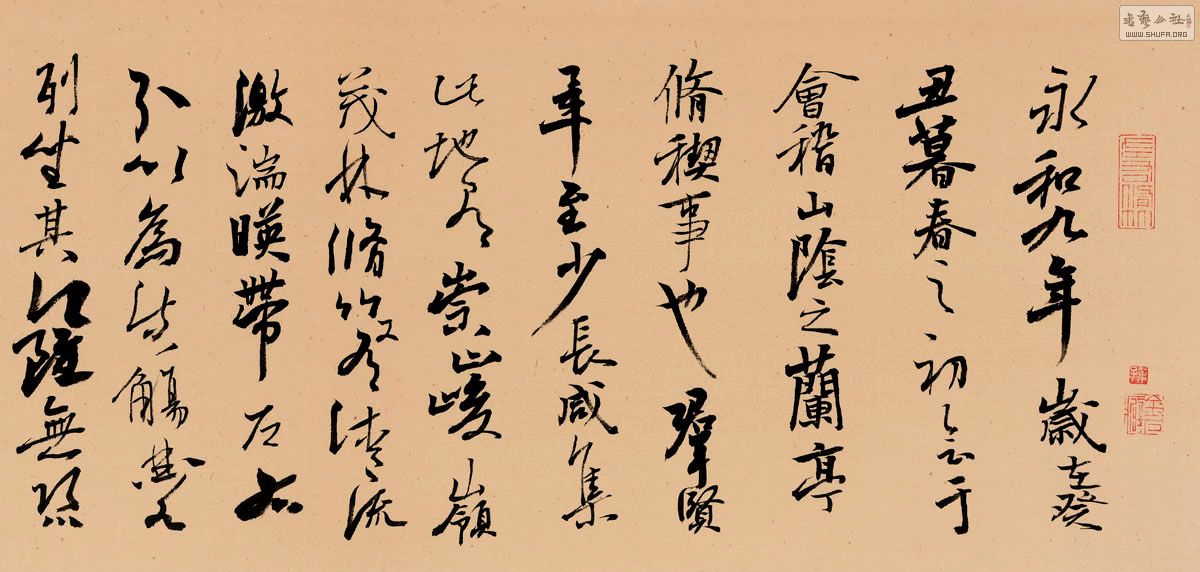 永和九年歲在癸
丑暮春之初會于
會稽山陰之蘭亭
脩稧事也羣賢
畢至少長咸集
此地有崇山峻嶺
茂林脩竹又有清流
激湍暎帶左右
引以為流觴曲水
列坐其次雖無絲
書藝公社
WWW.SHUFA.ORG